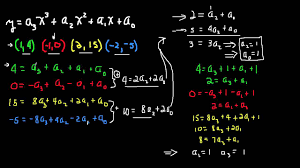 y = a₃x³ + a₂x² + a₁x + a₀
→ (1,4) (-1,0) (2,15) (-2,-5)
→ 4 = a₃ + a₂ + a₁ + a₀
→ 0 = -a₃ + a₂ - a₁ + a₀
4 = 2a₂ + 2a₀
15 = 8a₃ + 4a₂ + 2a₁ + a₀
-5 = -8a₃ + 4a₂ - 2a₁ + a₀
10 = 8a₂ + 2a₀
→ 2 = a₂ + a₀
5 = 4a₂ + a₀
3 = 3a₂ →
a₂ = 1
a₀ = 1
4 = a₃ + a₁ + 2
0 = -a₃ + 1 - a₁ + 1
2 = a₃ + a₁
15 = 8a₃ + 4 + 2a₁ + 1
10 = 8a₃ + 2a₁
a₁ = 1